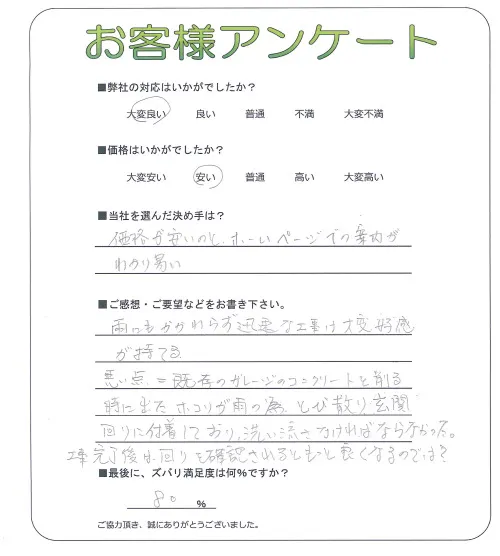 お客様アンケート
■弊社の対応はいかがでしたか?
大変良い 良い 普通 不満 大変不満
■価格はいかがでしたか?
大変安い 安い 普通 高い 大変高い
■当社を選んだ決め手は?
価格が安いのと、ホームページでの案内が
わかり易い
■ご感想・ご要望などをお書き下さい。
雨にもかかわらず迅速な工事は大変好感
が持てる
悪い点 = 既存のガレージのコンクリートを削る
時に出たホコリが雨の為、とび散り玄関
回りに付着しており、洗い流さなければならなかった。
工事完了後は回りを確認されるともっと良くなるのでは?
■最後に、ズバリ満足度は何%ですか?
80 %
ご協力頂き、誠にありがとうございました。